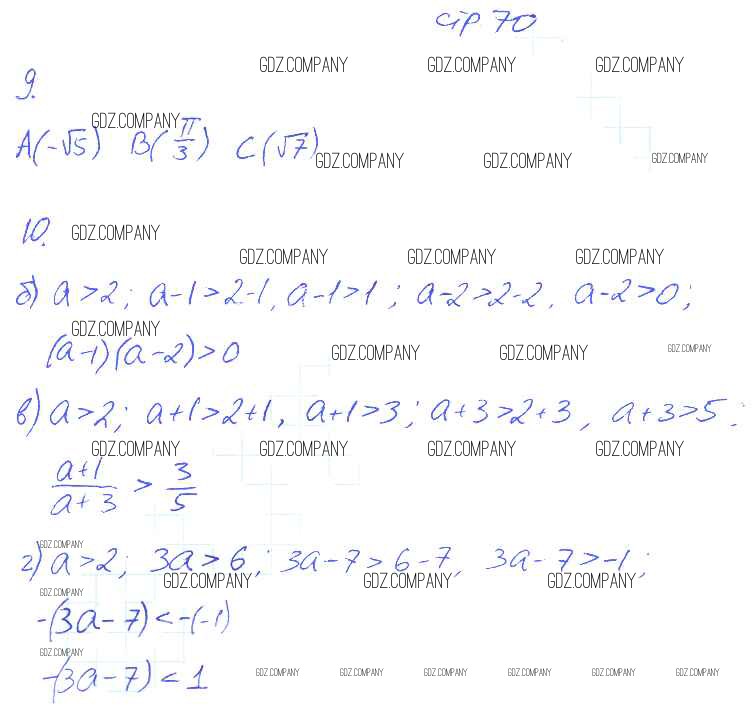 стр 70
GDZ.COMPANY GDZ.COMPANY GDZ.COMPANY
9.
GDZ.COMPANY
A(-√5) B(π/3) C(√7)
GDZ.COMPANY GDZ.COMPANY GDZ.COMPANY
10. GDZ.COMPANY
GDZ.COMPANY GDZ.COMPANY GDZ.COMPANY
б) a>2; a-1>2-1, a-1>1; a-2>2-2, a-2>0;
GDZ.COMPANY
(a-1)(a-2)>0 GDZ.COMPANY GDZ.COMPANY GDZ.COMPANY
в) a>2; a+1>2+1, a+1>3; a+3>2+3, a+3>5;
GDZ.COMPANY GDZ.COMPANY GDZ.COMPANY GDZ.COMPANY
(a+1)/(a+3) > 3/5
GDZ.COMPANY
г) a>2; 3a>6; 3a-7>6-7, 3a-7>-1;
GDZ.COMPANY GDZ.COMPANY GDZ.COMPANY
GDZ.COMPANY
-(3a-7)<-(-1)
GDZ.COMPANY
-(3a-7)<1 GDZ.COMPANY GDZ.COMPANY GDZ.COMPANY GDZ.COMPANY GDZ.COMPANY GDZ.COMPANY